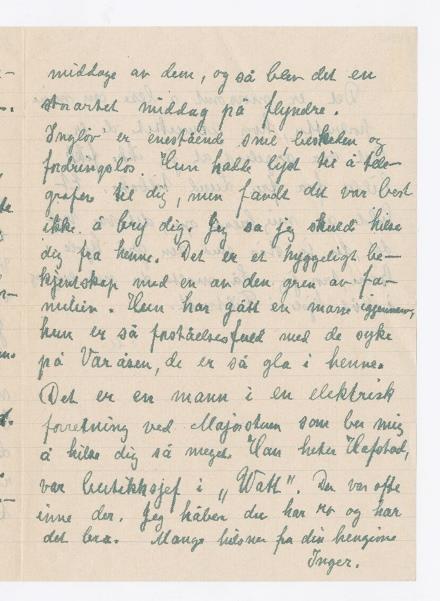 middage av dem, og så blev det en
storartet middag på flyndre.
Ingløv er enestående snil beskeden og
fordringsløs Hun hadde lyst til å tele-
grafere til dig, men fandt det var best
ikke å bry dig. Jeg sa jeg skulde hilse
dig fra henne. Det er et hyggeligt be-
kjentskap med en anden gren av fa-
milien. Hun har gått en mare igjennem,
hun er så forståelsesfuld med de syke
på Varåsen, de er så gla i henne.
Det er en mann i en elektrisk
forretning ved Majorstuen som ber mig
å hilse dig så meget. Han heter Hafstad,
var butikksjef i „Watt". Du var ofte
inne der. Jeg håber du har ro og har
det bra. Mange hilsner fra din hengivne
Inger.